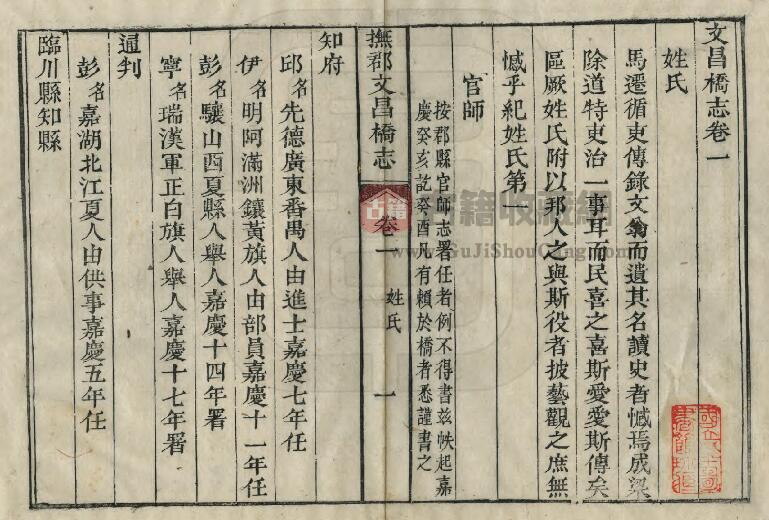 文昌橋志卷一
姓氏
馬遷循吏傳錄文翁而遺其名讀史者憾焉成梁
除道特吏治一事耳而民喜之喜斯愛愛斯傳矣
區厥姓氏附以邦人之與斯役者披藝觀之庶無
憾乎紀姓氏第一
官師
按郡縣官師志署任者例不得書兹帙起嘉
慶癸亥訖癸酉凡有賴於橋者悉謹書之
撫郡文昌橋志 卷一 姓氏 一
知府
邱名先德廣東番禺人由進士嘉慶七年任
伊名明阿滿洲鑲黃旗人由部員嘉慶十一年任
彭名驤山西夏縣人舉人嘉慶十四年署
寧名瑞漢軍正白旗人舉人嘉慶十七年署
通判
彭名嘉湖北江夏人由供事嘉慶五年任
臨川縣知縣
古籍
書籍收藏網
www.GuJiShouCang.com